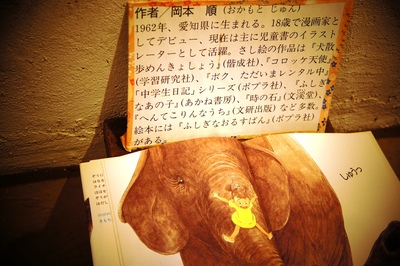 作者／岡本　順（おかもと じゅん）
1962年、愛知県に生まれる。18歳で漫画家と
してデビュー、現在は主に児童書のイラスト
レーターとして活躍。さし絵の作品は「犬散
歩めんきょしょう」（偕成社）、「コロッケ天使」
（学習研究社）、「ボク、ただいまレンタル中」
「中学生日記」シリーズ（ポプラ社）、「ふしぎ
なあの子」（あかね書房）、「時の石」（文溪堂）、
「へんてこりんなうち」（文研出版）など多数。
絵本には「ふしぎなおるすばん」（ポプラ社）
がある。
しゅうっ